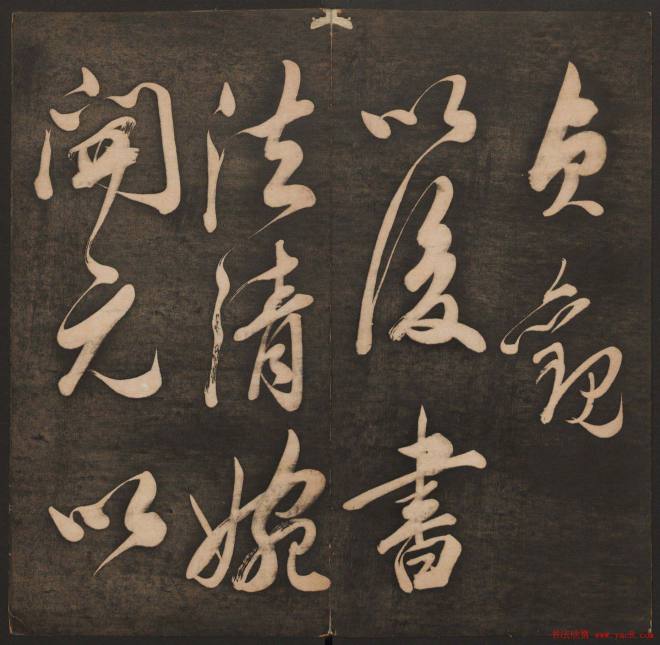 贞观
以後書
法清婉
開元以
书法欣赏 www.yac8.com